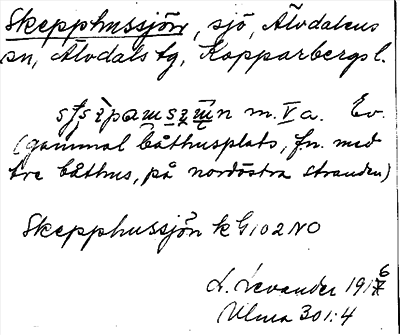 Skepphussjön, sjö, Älvdalens
sn, Älvdals tg, Kopparbergs l.
m. Va. Ev.
(gammal båthusplats, f.n. med
tre båthus, på nordöstra stranden)
Skepphussjön k G 102 NO
L. Levander 1916
Ulma 301:4